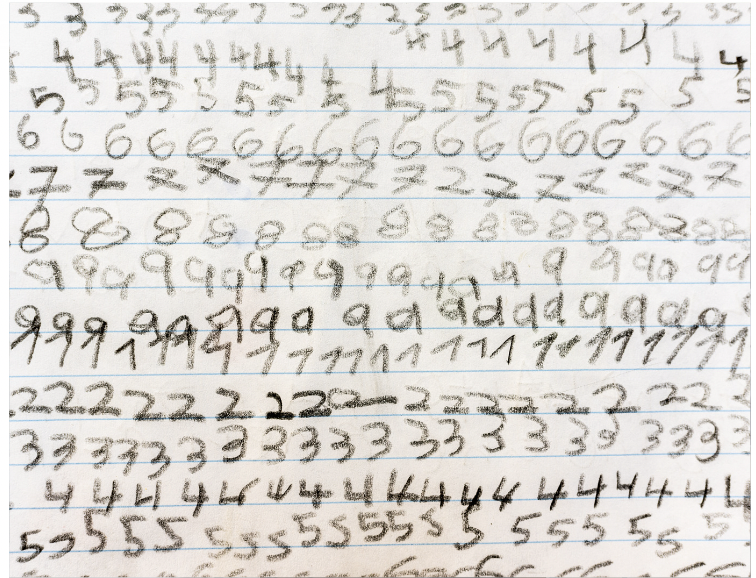 3 3 3 3 3 3 3 3 3 3 3 3 3 3 3
4 4 4 4 4 4 4 4 4 4 4 4 4 4 4 4 4
5 5 5 5 5 5 5 5 5 5 5 5 5 5 5 5 5 5
6 6 6 6 6 6 6 6 6 6 6 6 6 6 6 6 6
7 7 7 7 7 7 7 7 7 7 7 7 7 7 7 7
8 8 8 8 8 8 8 8 8 8 8 8 8 8 8 8
9 9 9 9 9 9 9 9 9 9 9 9 9 9 9 9 9 9 9 9
9 9 9 9 9 9 9 9 9 9 9 9 9 9 9 9 9 9
1 1 1 1 1 1 1 1 1 1 1 1 1 1 1 1 1 1 1 1 1 1 1
2 2 2 2 2 2 2 2 2 2 2 2 2 2 2 2 2
3 3 3 3 3 3 3 3 3 3 3 3 3 3 3 3 3 3 3
4 4 4 4 4 4 4 4 4 4 4 4 4 4 4 4 4 4
5 5 5 5 5 5 5 5 5 5 5 5 5 5 5 5 5 5 5